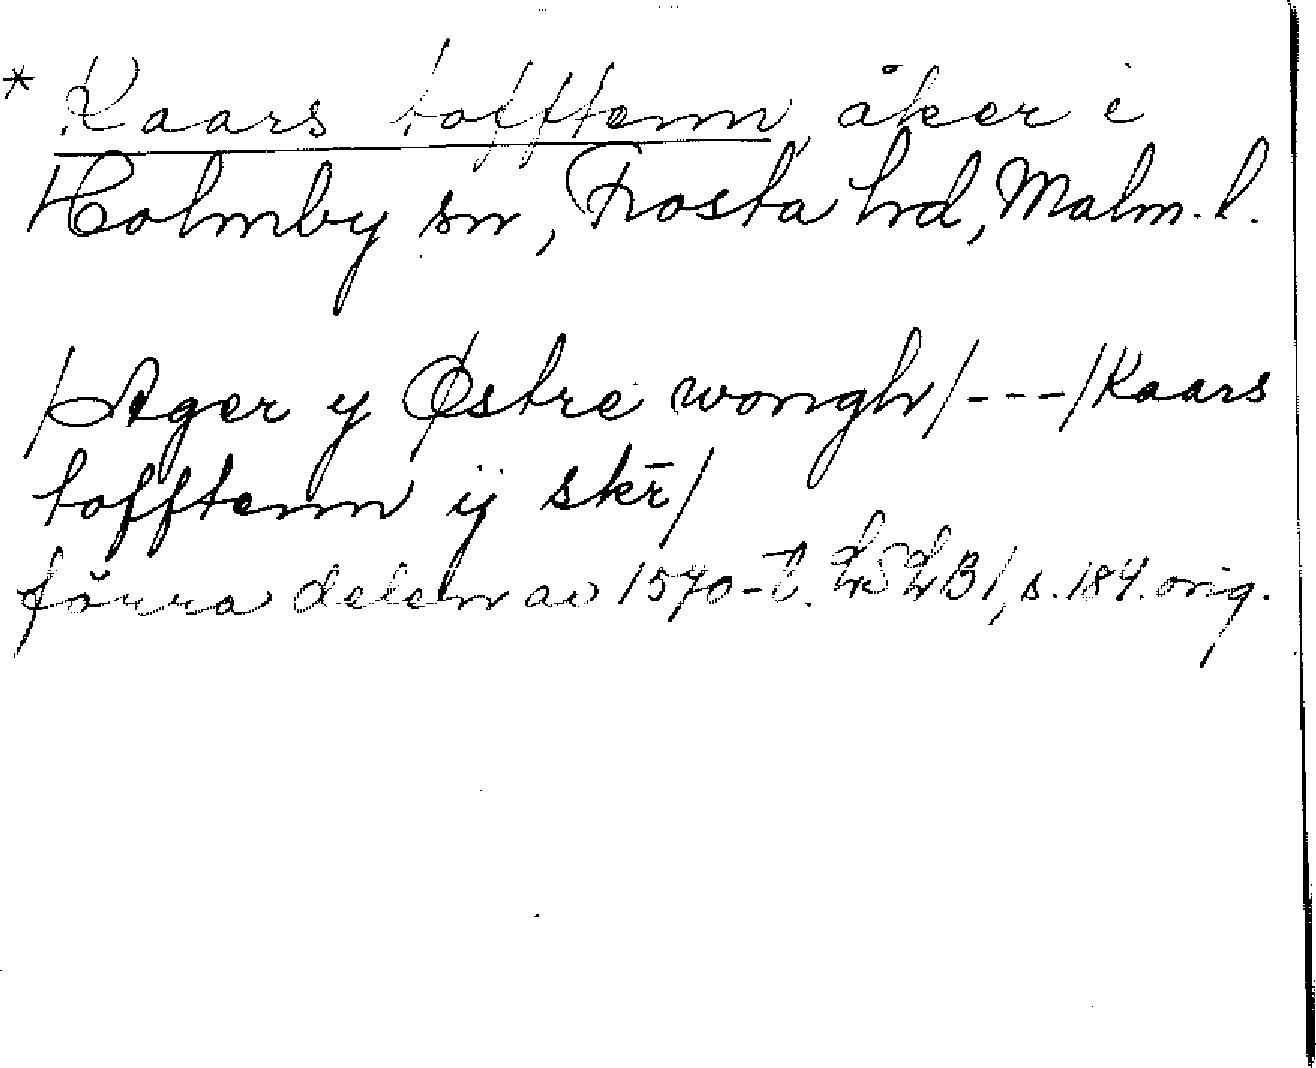 * Kaars tofftenn, åker i
Holmby sn, Frosta hd, Malm. l.
/Ager y Østre wongh/---/Kaars
tofftenn ij skr̄/
förra delen av 1570-t. LSLB 1, s. 184. orig.